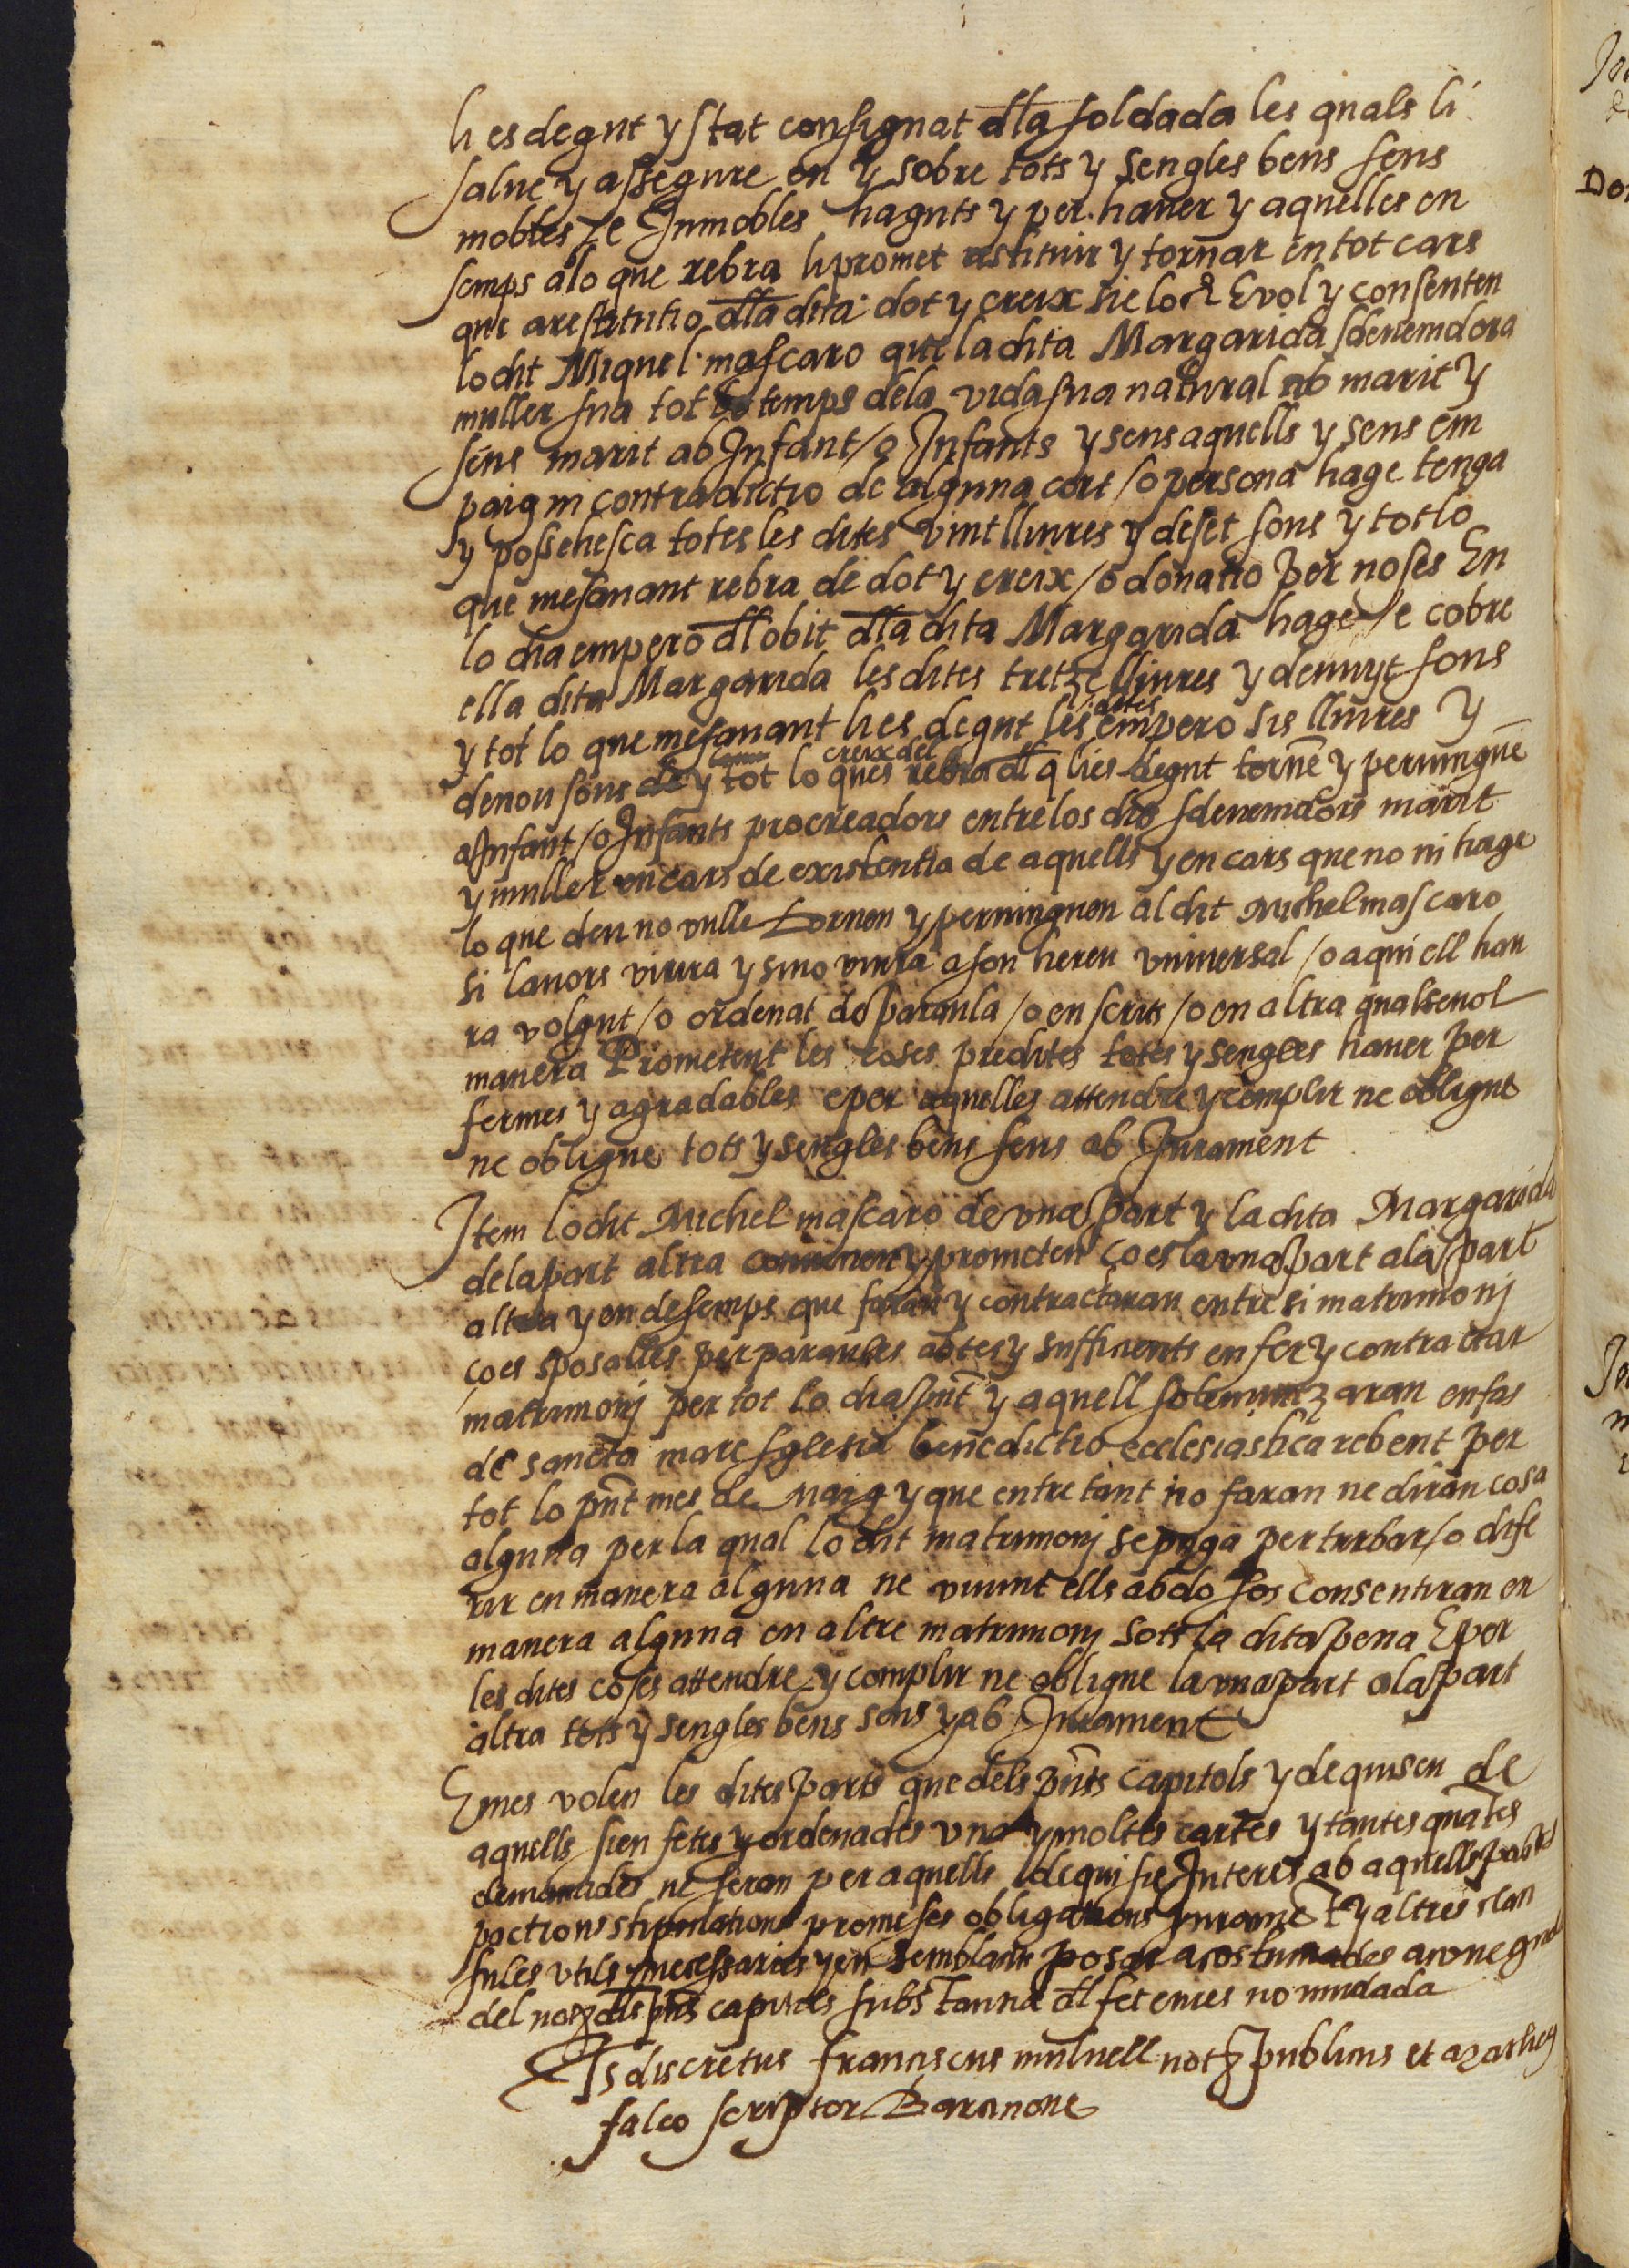 li es degut y stat consignat dla soldada les quals li
salue y assegure en y sobre tots y sengles bens sens
mobles Ze Jnmobles haguts y per hauer y aquelles en
semps ab lo que rebra li promet restituir y tornar en tot cars
que a restitutio dlla dita dot y creix sie loch E vol y consenten
lo dit Miquel mascaro que la dita Margarida sdeuenidora
muller sua tot lo temps dela vida sua natural ab marit y
sens marit ab Jnfant /o Jnfants y sens aquells y sens em
paig ni contradictio de alguna cort /o persona hage tenga
y possehesca totes les dites vint lliures y deset sous y tot lo
que mesauant rebra de dot y creix /o donatio per noses En
lo dia empero dl obit dlla dita Margarida hage /e cobre
ella dita Margarida les dites tretze lliures y denuyt sous
y tot lo que mesauant li es degut les dites empero sis lliures y
denou sous de y tot lo creix del ques rebra dl q li es degut torne y peruingue
a Jnfant /o Jnfants procreadors entre los dits sdeuenidors marit
y muller en cars de existentia de aquells y en cars que no ni hage
lo que deu no vulle tornen y peruinguen al dit Michel mascaro
si lauors viura y sino viura a son hereu vniuersal /o a qui ell hau
ra volgut /o ordenat de paraula /o en scrits /o en altra qualseuol
manera Prometent les coses predites totes y sengles hauer per
fermes y agradables e per aquelles attendre y complir ne obligue
ne obligue tots y sengles bens sens ab Jurament
Jtem lo dit Michel mascaro de vna part y la dita Margarida
de la part altra conuenen y prometen ço es la vna part a la part
altra y en desemps que faran y contractaran entre si matrimonj
ço es sposalles per paraules abtes y sufficients en fer y contractar
matrimonj per tot lo dia pnt y aquell solemnizaran en fas
de sancta mare sglesia benedictio ecclesiastica rebent per
tot lo pnt mes de Maig y que entre tant no faran ne diran cosa
alguna per la qual lo dit matrimonj se puga perturbar /o dife
rir en manera alguna ne viuint ells abdos sos consentiran en
manera alguna en altre matrimonj sots la dita pena E per
les dites coses attendre y complir ne obligue la vna part a la part
altra tots y sengles bens sons y ab Jurament
E mes volen les dites parts que dels pnts capitols y de quisen de
aquells sien fetes y ordenades vna y moltes cartes y tantes quates
demanades ne seran per aquells de qui sie Jnteres ab aquells pactes
pactions stipulations promeses obligations Jurament y altres clau
sules vtils y necessaries y en semblants posar acostumades a coneguda
del not dls pnts capitols substantia dl fet emes no mudada
Ts discretus franciscus mulnell not publicus et
falco scriptor Barcinone